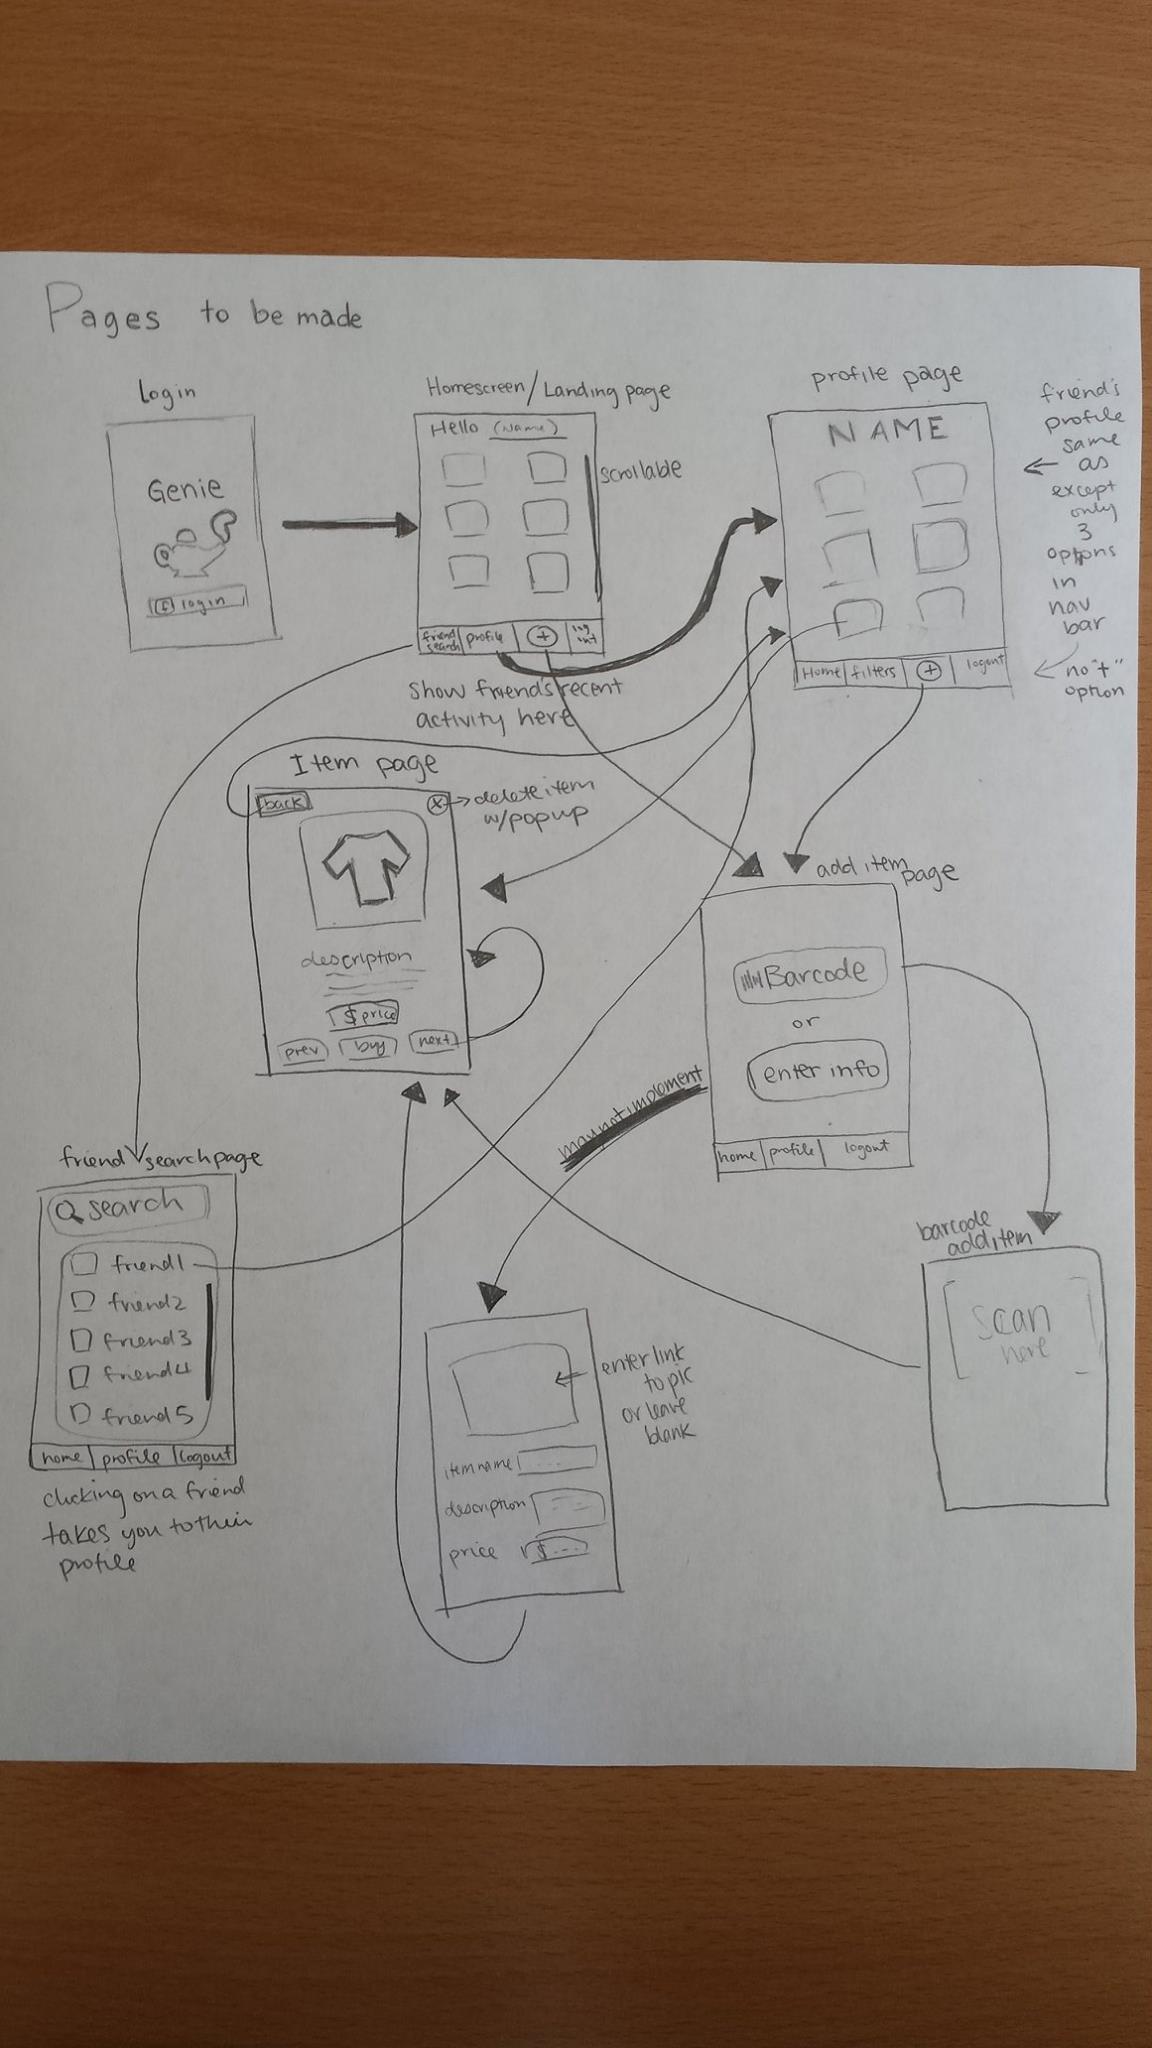 Pages to be made
login
Genie
f login
Homescreen/Landing page
Hello (Name)
scrollable
friend
search
profile
+
log
out
show friend's recent
activity here
profile page
NAME
Home
filters
+
logout
friend's
profile
same
as
except
only
3
options
in
nav
bar
no "+"
option
Item page
back
x
delete item
w/popup
description
$ price
prev
buy
next
add item
page
Barcode
or
enter info
home
profile
logout
may not implement
friend search page
search
friend1
friend2
friend3
friend4
friend5
home
profile
logout
clicking on a friend
takes you to their
profile
enter link
to pic
or leave
blank
item name
...
description
price
$ ...
barcode
add item
scan
here